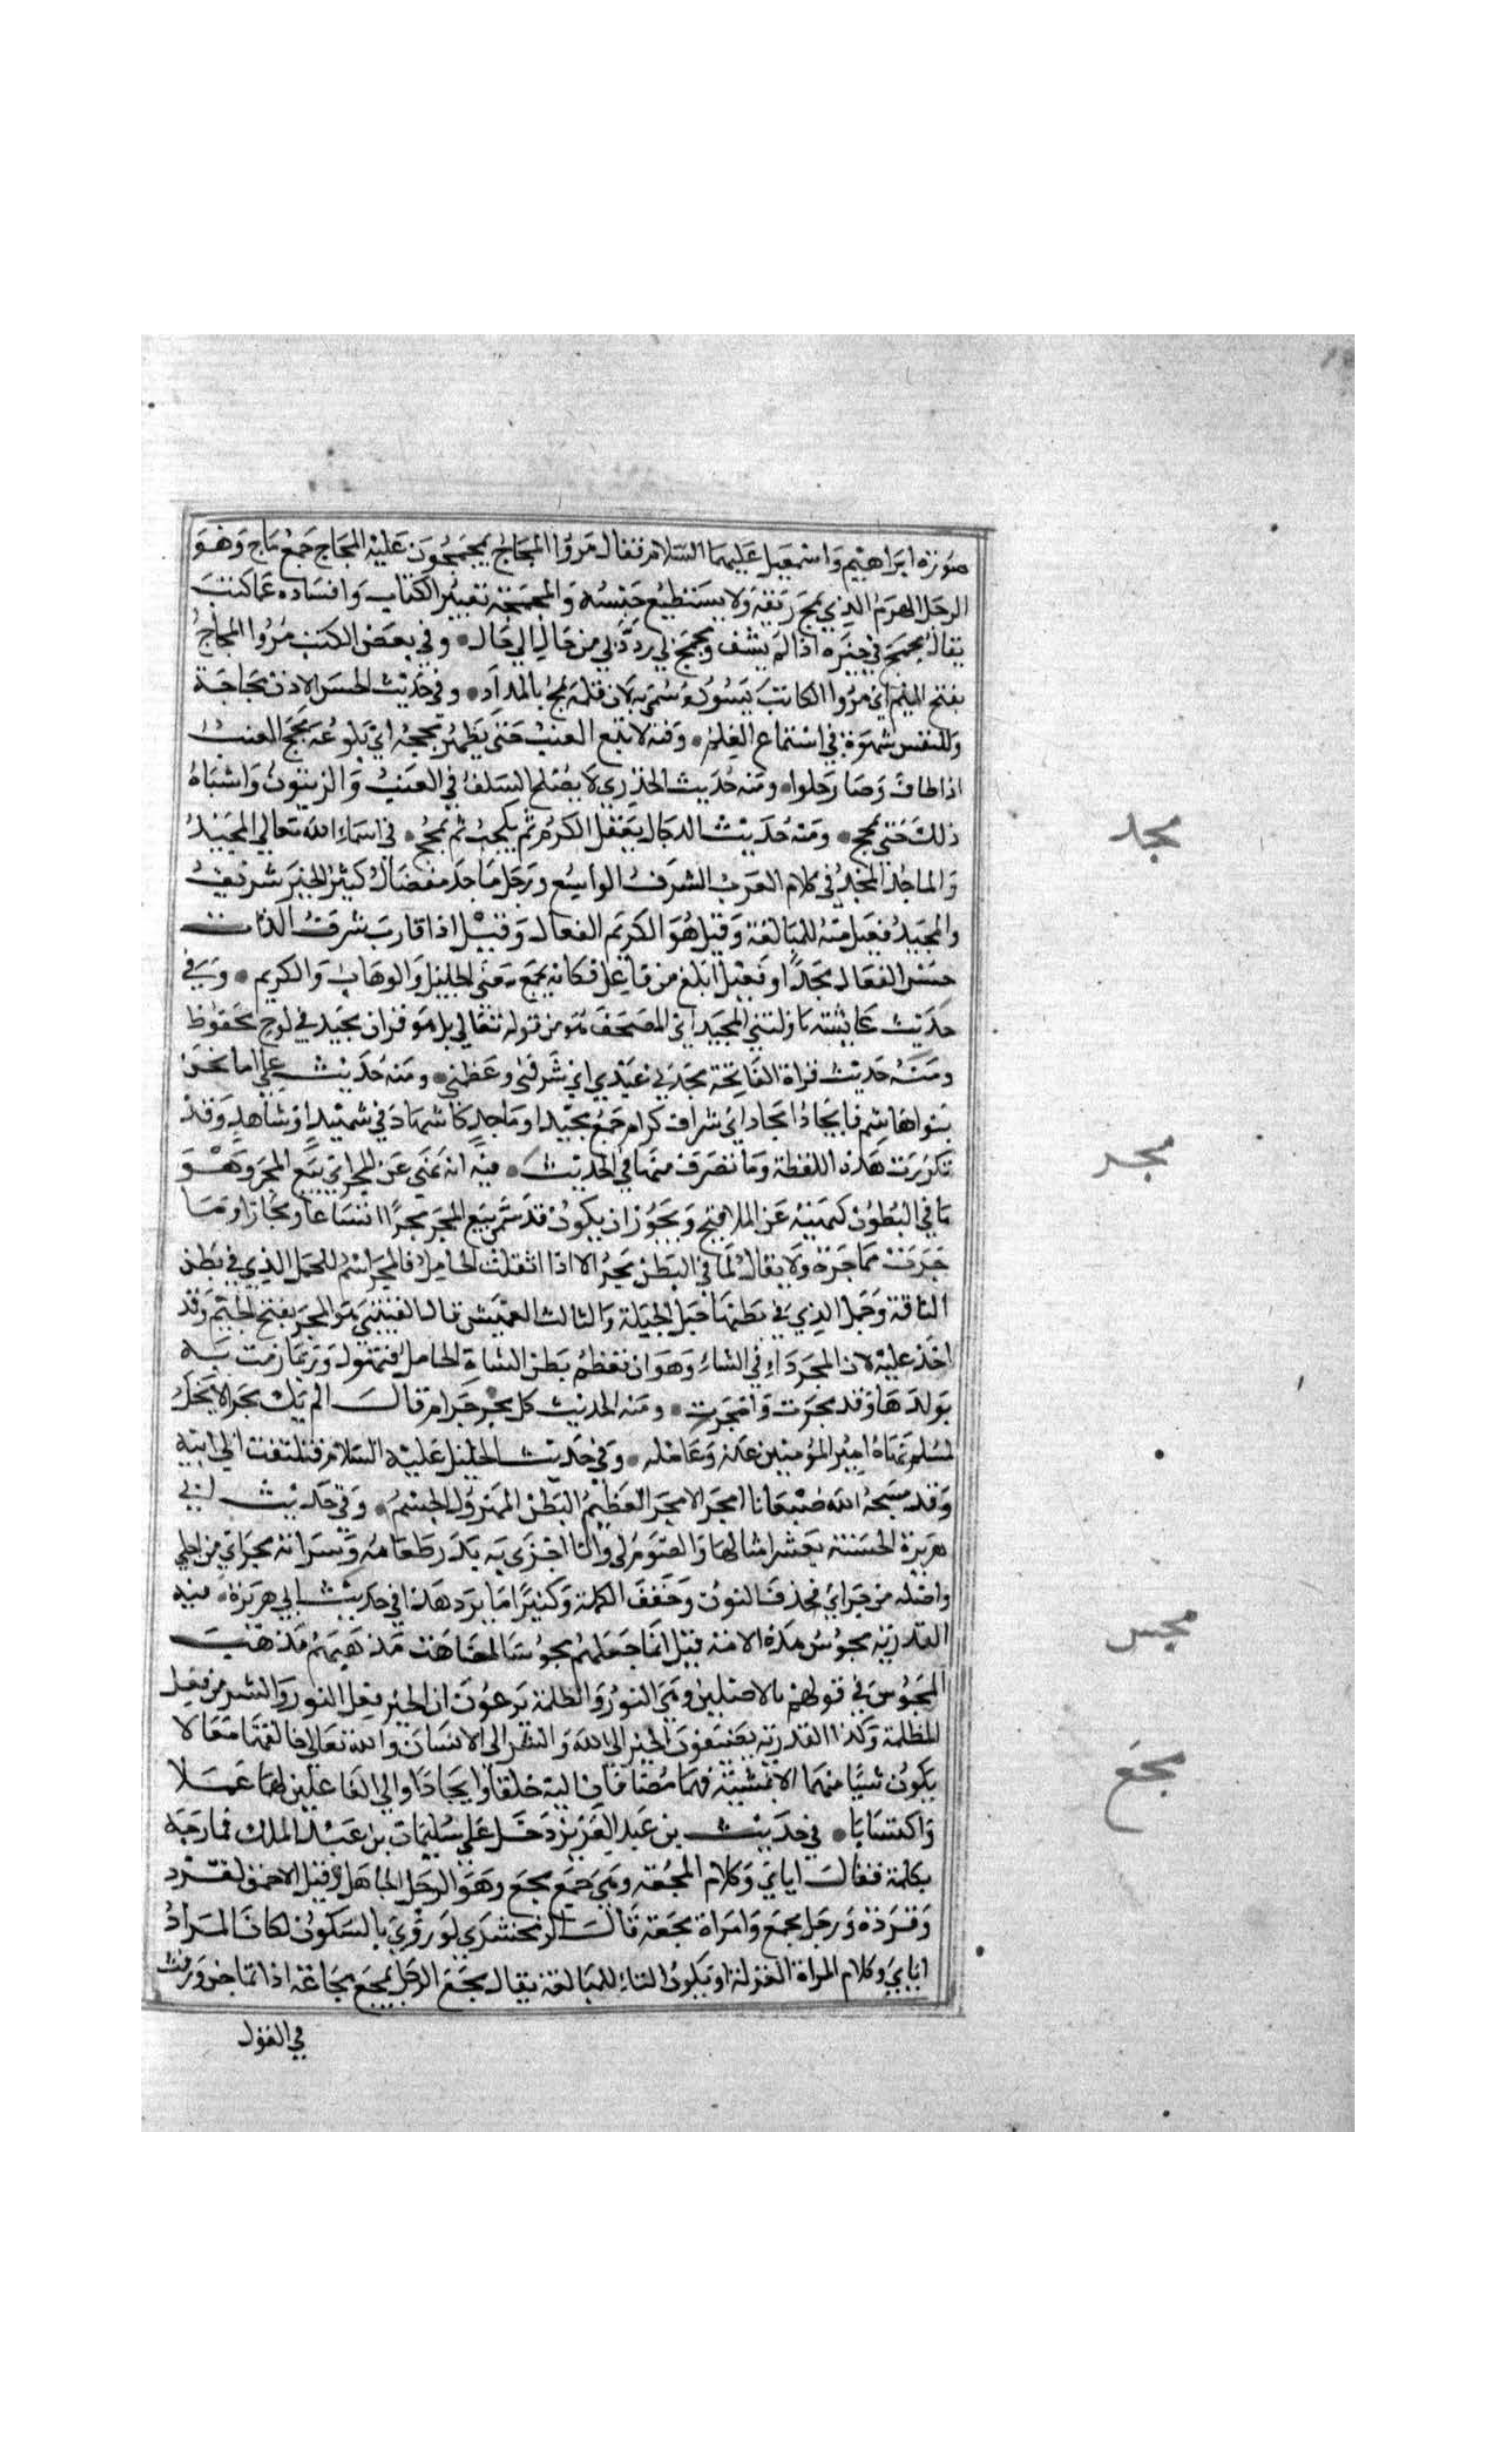 صورة ابراهيم واسمعيل عليهما السلام فقال مروا المجاج يمجمجون عليه المجاج جمع ماج وهو
الرجل الهرم الذي يمج ريقه ولا يستطيع حبسه والمجمجة تغيير الكتاب وافساده عما كتب
يقال مجمج في خبره اذا لم يشف ومجمج بي رددني من حال الي حال وفي بعض الكتب مروا المجاج
بفتح الميم اي مروا الكاتب يسوده سمي به لان قلمه يمج بالمداد وفي حديث الحسن الاذن مجاجة
وللنفس شهوة في استماع العلم ومنه لا تبع العنب حتي يظهر مججه اي بلوغه مجج العنب
اذا طاف وصار حلوا ومنه حديث الخدري لا يصلح السلف في العنب والزيتون واشباه
ذلك حتي يمجج ومنه حديث الدجال يعقل الكرم ثم يكحب ثم يمجج في اسماء الله تعالي المجيد
مجد
والماجد المجد في كلام العرب الشرف الواسع ورجل ماجد مفضال كثير الخير شريف
والمجيد فعيل منه للمبالغة وقيل هو الكريم الفعال وقيل اذا قارب شرف الذات
حسن الفعال مجدا وفعيل ابلغ من فاعل فكانه يجمع معني الجليل والوهاب والكريم وفي
حديث عايشة ناوليني المجيد اي المصحف هو من قوله تعالي بل هو قران مجيد في لوح محفوظ
ومنه حديث قراة الفاتحة مجدني عبدي اي شرفني وعظمني ومنه حديث علي اما نحن
بنوا هاشم فانجاد امجاد اي شراف كرام جمع مجيد او ماجد كاشهاد في شهيد او شاهد وقد
تكررت هذه اللفظة وما تصرف منها في الحديث فيه انه نهي عن المجر اي بيع المجر وهو
مجر
ما في البطون كنهيه عن الملاقيح ويجوز ان يكون قد سمي بيع المجر مجرا اتساعا ومجازا وما
جرت مماجرة ولا يقال لما في البطن مجر الا اذا اثقلت الحامل فالمجر اسم للحمل الذي في بطن
الناقة وحمل الذي في بطنها حبل الحبلة والثالث الغميس قال القتيبي هو المجر بفتح الجيم وقد
اخذ عليه لان المجر داء في الشاء وهو ان تعظم بطن الشاة الحامل فتهزل وربما رمت به
بولدها وقد مجرت وامجرت ومنه الحديث كل مجر حرام قال الم يك مجرا لا تحل
لمسلم نهاه امير المؤمنين عنه وعامله وفي حديث الخليل عليه السلام فيلتفت الي ابيه
وقد مسخه الله ضبعانا امجر الامجر العظيم البطن المهزول الجسم وفي حديث ابي
هريرة الحسنة بعشر امثالها والصوم لي وانا اجزي به يذر طعامه وشرابه مجراي من اجلي
واصله من جراي فحذف النون وخفف الكلمة وكثيرا ما يرد هذا في حديث ابي هريرة فيه
القدرية مجوس هذه الامة قيل انما جعلهم مجوسا لمضاهات مذهبهم مذهب
مجس
المجوس في قولهم بالاصلين وهي النور والظلمة يزعون ان الخير من فعل النور والشر من فعل
الظلمة وكذا القدرية يضيفون الخير الي الله والشر الي الانسان والله تعالي خالقهما معا لا
يكون شييا منهما الا بمشيته فهما مضافان اليه خلقا وايجادا والي الفاعلين لهما عملا
مجع
واكتسابا في حديث بن عبد العزيز دخل علي سليمان بن عبد الملك فمازحه
بكلمة فقال اياي وكلام المجعة وهي جمع مجع وهو الرجل الجاهل وقيل الاحمق كقرد
وقردة ورجل مجع وامراة مجعة قال الزمخشري لو روي بالسكون لكان المراد
اياي وكلام المراة الغزلة او تكون التاء للمبالغة يقال مجع الرجل يمجع مجاعة اذا تماجن ورفث
في القول